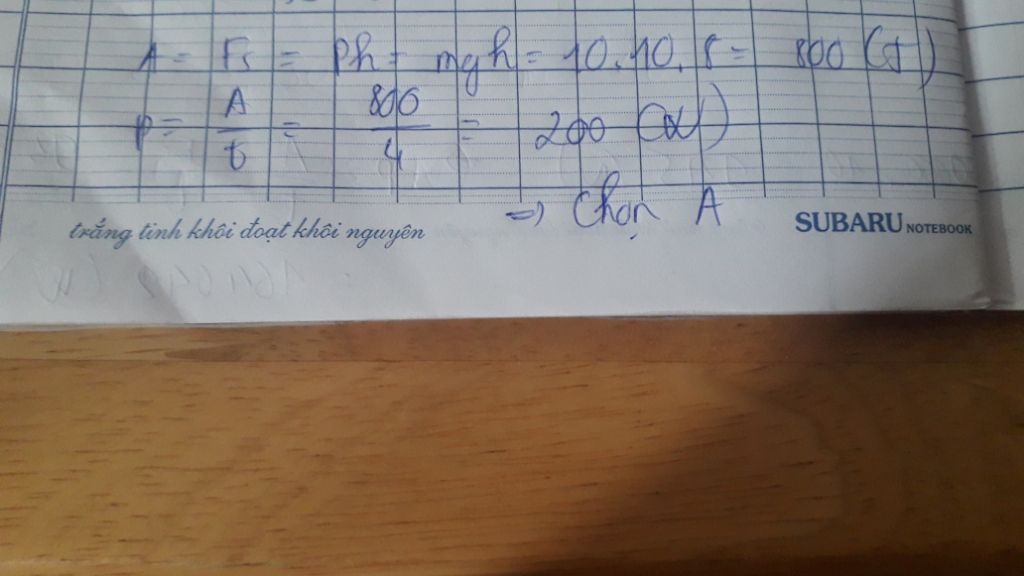 A = Fs = Ph = mgh = 10.10.8 = 800 (J)
P = A/t = 800/4 = 200 (W)
=> Chọn A
trắng tinh khôi đoạt khôi nguyên
SUBARU NOTEBOOK